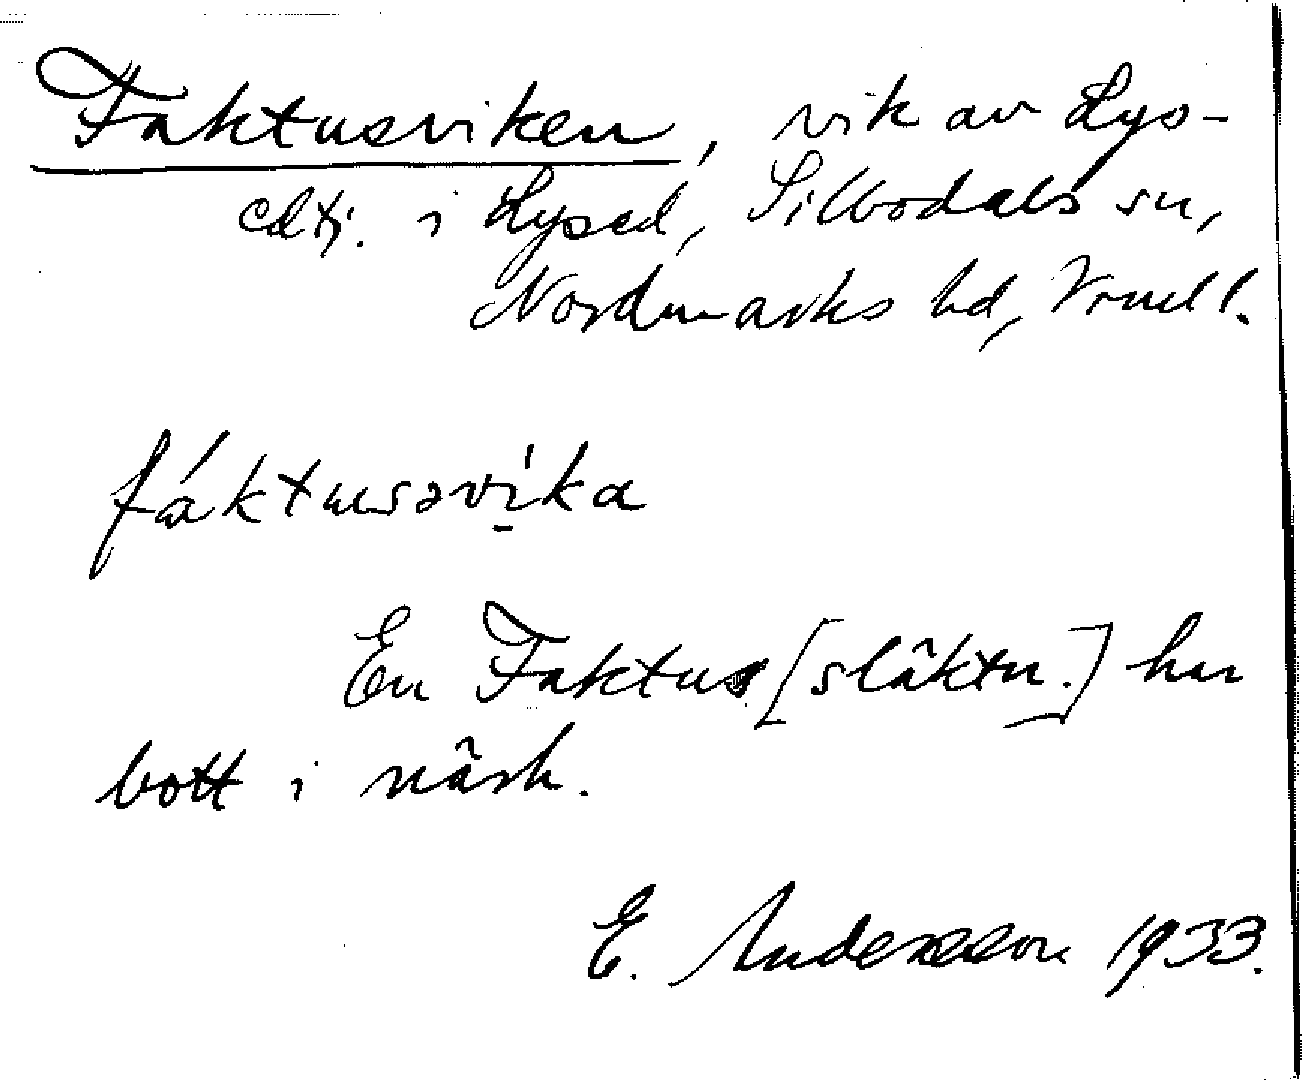 Faktusviken, vik av Lys-
edtj. i Lysed, Silbodals sn,
Nordmarks hd, Vrml l.
fáktusəvi̠ka
En Faktus [släktn.] har
bott i närh.
E. Andersson 1933.